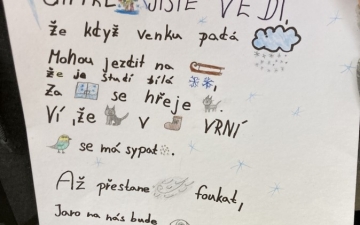 JISTĚ VĚDÍ,
že když venku padá
Mohou jezdit na
že je studí bílá
Za se hřeje
Ví, že v VRNÍ
se má sypat.
Až přestane foukat,
Jaro na nás bude